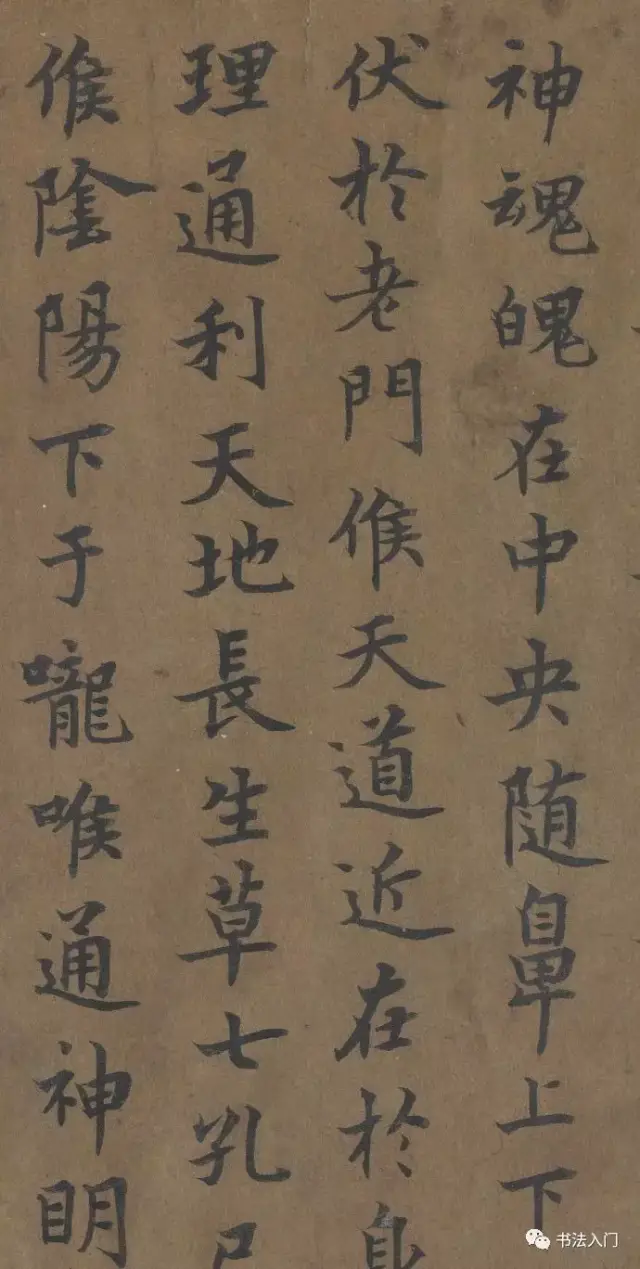 神魂魄在中央随鼻上下
伏於老門候天道近在於身
理通利天地長生草七孔
候陰陽下于嚨喉通神眀
书法入门